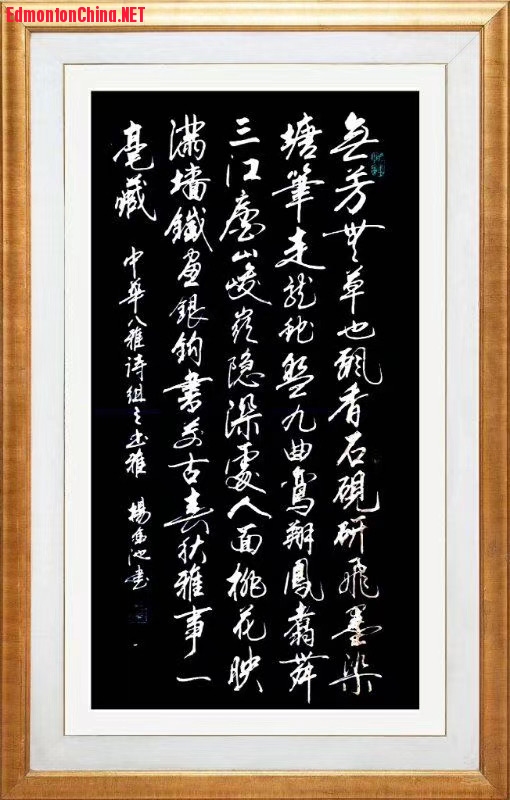 EdmontonChina.NET
無芳無草也飄香石硯研飛墨染
塘筆走龍蛇盤九曲鸞翔鳳翥舞
三江廬山峻嶺隐深處人面桃花映
滿墻鐵畫銀鈎書萬古春秋雅事一
毫藏 中華八雅诗组之书雅 楊池書